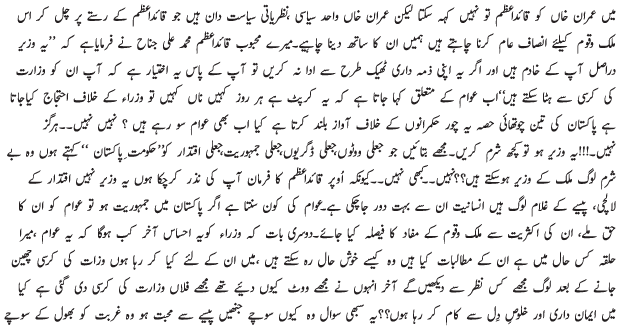 میں عمران خان کو قائداعظم تو نہیں کہہ سکتا لیکن عمران خاں واحد سیاسی ،نظریاتی سیاست دان ہیں جو قائداعظم کے رستے پر چل کر اس
ملک وقوم کیلئے انصاف عام کرنا چاہتے ہیں ہمیں ان کا ساتھ دینا چاہیے۔میرے محبوب قائداعظم محمد علی جناح نے فرمایاہے کہ ’’یہ وزیر
دراصل آپ کے خادم ہیں اور اگر یہ اپنی ذمہ داری ٹھیک طرح سے ادا نہ کریں تو آپ کے پاس یہ اختیار ہے کہ آپ ان کو وزارت
کی کرسی سے ہٹا سکتے ہیں‘‘اب عوام کے متعلق کہا جاتا ہے کہ یہ کرپٹ ہے ہر روز کہیں ناں کہیں تو وزراء کے خلاف احتجاج کیاجاتا
ہے پاکستان کی تین چوتھائی حصہ یہ چور حکمرانوں کے خلاف آواز بلند کرتا ہے کیا اب بھی عوام سو رہے ہیں ؟ نہیں نہیں۔۔ہرگز
نہیں۔!!!یہ وزیر ہو تو کچھ شرم کریں۔مجھے بتائیں جو جعلی ووٹوں،جعلی ڈگریوں،جعلی جمہوریت،جعلی اقتدار کو’’حکومت پاکستان ‘‘ کہتے ہوں وہ بے
شرم لوگ ملک کے وزیر ہوسکتے ہیں؟؟نہیں۔۔کبھی نہیں۔۔کیونکہ اُوپر قائداعظم کا فرمان آپ کی نذر کرچکا ہوں یہ وزیر نہیں اقتدار کے
لالچی، پیسے کے غلام لوگ ہیں انسانیت ان سے بہت دور جاچکی ہے۔عوام کی کون سنتا ہے اگر پاکستان میں جمہوریت ہو تو عوام کو ان کا
حق ملے، ان کی اکثریت سے ملک وقوم کے مفاد کا فیصلہ کیا جائے۔دوسری بات کہ وزراء کو یہ احساس آخر کب ہوگا کہ یہ عوام ،میرا
حلقہ کس حال میں ہے ان کے مطالبات کیا ہیں وہ کیسے خوش حال رہ سکتے ہیں ،میں ان کے لئے کیا کر رہا ہوں وزات کی کرسی چھین
جانے کے بعد لوگ مجھے کس نظر سے دیکھیں گے آخر انہوں نے مجھے ووٹ کیوں دیئے تھے مجھے فلاں وزارت کی کرسی دی گئی ہے کیا
میں ایمان داری اور خلوص دِل سے کام کر رہا ہوں؟؟یہ سبھی سوال وہ کیوں سوچے جنھیں پیسے سے محبت ہو وہ غربت کو بھول کے سوچے